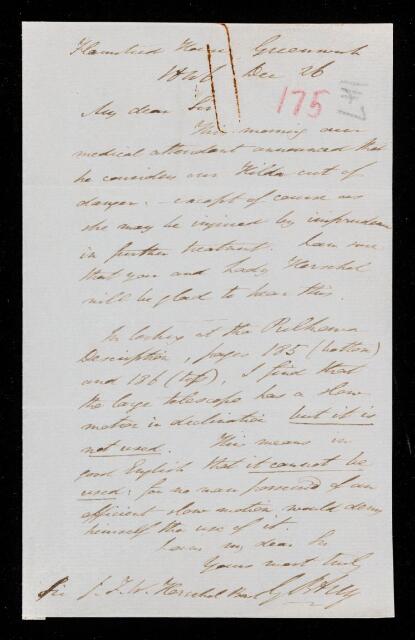 Flamsteed House Greenwich
1846 Dec 26
175
My dear Sir
This morning our
medical attendant announced that
he considers our Hilda out of
danger: — except of course as
she may be injured by imprudence
in further treatment. I am sure
that you and Lady Herschel
will be glad to hear this.
In looking at the Pulkowa
Description, pages 185 (bottom)
and 186 (top), I find that
the large telescope has a slow
motion in declination but it is
not used. This means in
good English that it cannot be
used: for no man possessed of an
efficient slow motion would deny
himself the use of it.
I am my dear Sir
Yours most truly
Sir J. F. W. Herschel Bart G B Airy